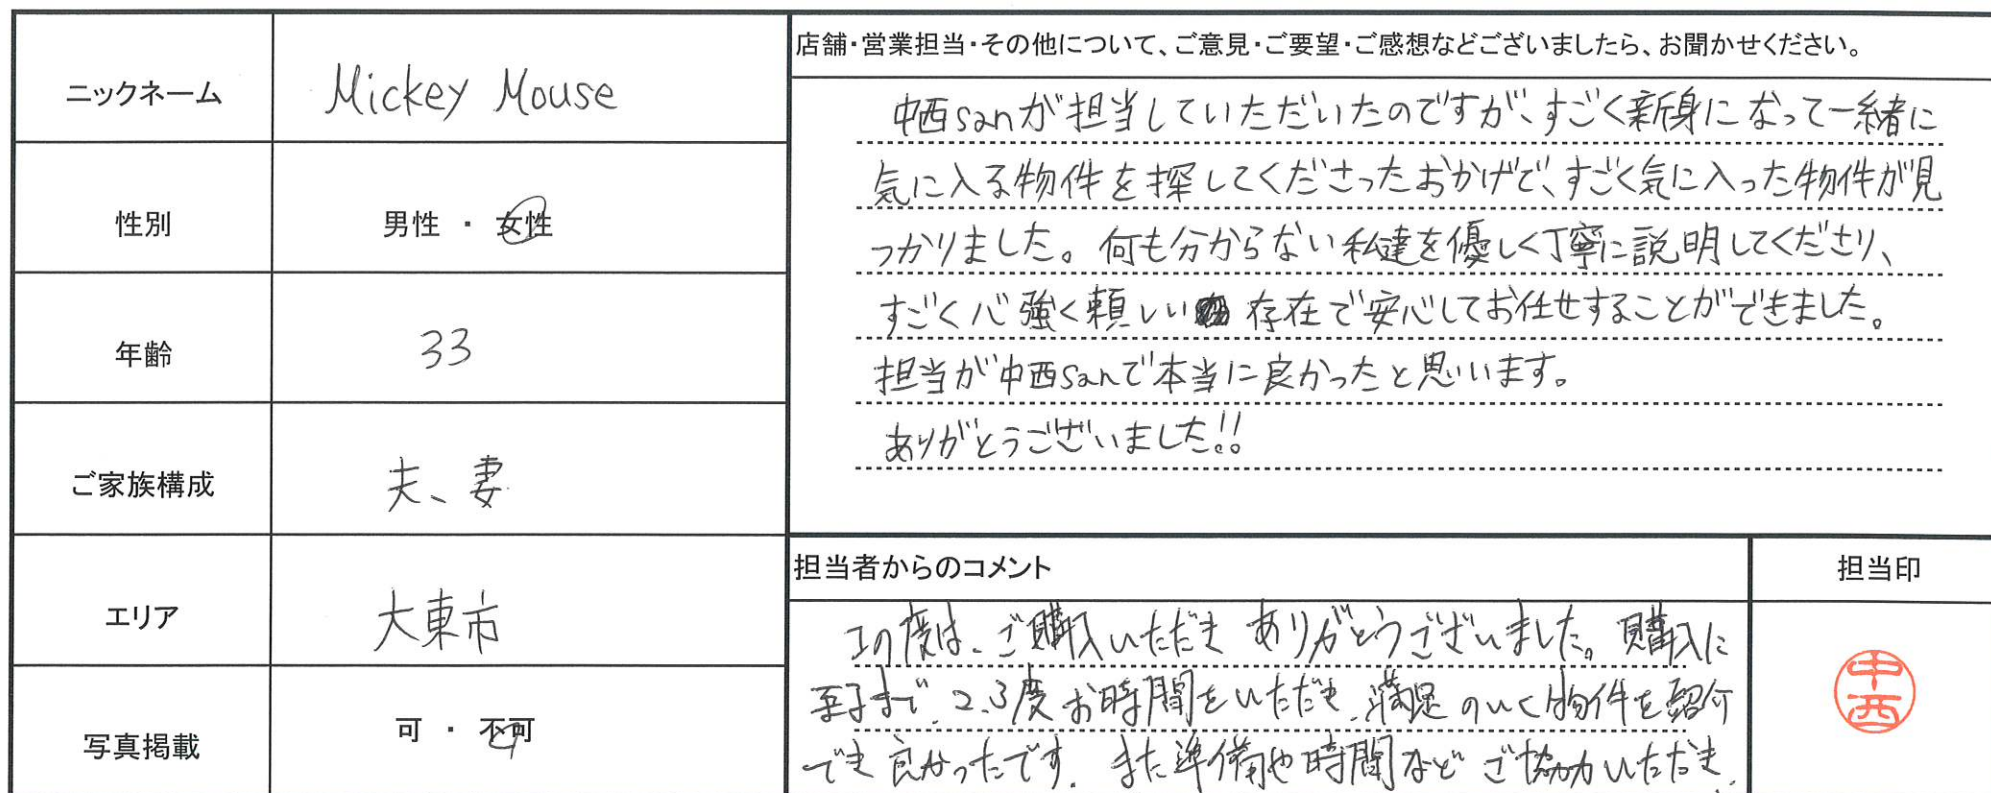 ニックネーム
Mickey Mouse
性別
男性 ・ 女性
年齢
33
ご家族構成
夫、妻
エリア
大東市
写真掲載
可 ・ 不可
店舗・営業担当・その他について、ご意見・ご要望・ご感想などございましたら、お聞かせください。
中西sanが担当していただいたのですが、すごく親身になって一緒に
気に入る物件を探してくださったおかげで、すごく気に入った物件が見
つかりました。何も分からない私達を優しく丁寧に説明してくださり、
すごく心強く頼しい存在で安心してお任せすることができました。
担当が中西sanで本当に良かったと思います。
ありがとうございました!!
担当者からのコメント
この度は、ご購入いただき ありがとうございました。購入に
至るまで、2、3度お時間をいただき、満足のいく物件を紹介
でき良かったです。また準備や時間などご協力いただき、
担当印
中西